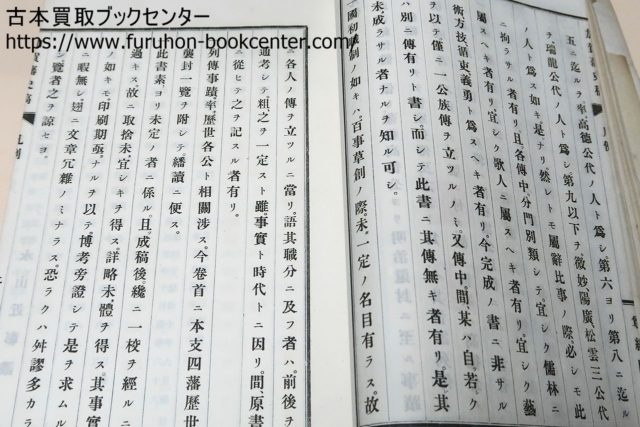 古本買取ブックセンター
https://www.furuhon-bookcenter.com/
五ニ迄ルヲ率高徳公代ノ人ト爲シ第六ヨリ第八ニ迄ル
ヲ瑞龍公代ノ人ト爲シ第九以下ヲ微妙陽廣松雲三公代
ノ人ト爲ス如キ是ナリ然レトモ屬辭比事ノ際必シモ此
ニ拘ラサル者有リ且各傳中分門別類シテ宜シク儒林ニ
屬スヘキ者有リ宜シク歌人ニ屬スヘキ者有リ宜シク藝
術方技循吏義勇ニ屬スヘキ者有リ今完成ノ書ニ非サル
ヲ以テ僅ニ一公族傳ヲ立ツルノミ又傳中間某ハ自若ク
ハ別ニ傳有リト書シ而シテ此書ニ其傳無キ者有リ是其
未成ラサル者ナルヲ知ル可シ。
一國初職制ノ如キハ百事草創ノ際未一定ノ名目有ラス故
ニ各人ノ傳ヲ立ツルニ當リ語其職分ニ及フ者ハ前後ヲ
通考シテ粗之ヲ一定スト雖事實ト時代トニ因リ間原書
ニ從ヒテ之ヲ記スル者有リ。
列傳事蹟率歴世各公ト相關渉ス。今卷首ニ本支四藩歴世
襲封一覽ヲ附シテ繙讀ニ便ス。
此書素ヨリ未定ノ者ニ係ル。且成稿後纔ニ一校ヲ經ルニ
過キス故ニ取捨未宜シキヲ得ス。詳略未體ヲ得ス。其事實
ノ如キモ印刷期亟ナルヲ以テ博考旁證シテ是ヲ求ムル
ニ暇無シ翅ニ文章冗雜ノミナラス。恐ラクハ舛謬多カラ
覽者之ヲ諒セヨ。
凡例